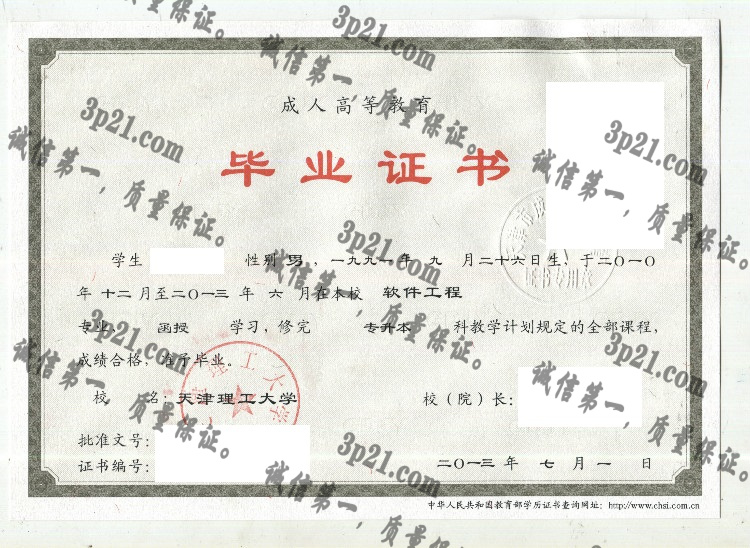 成人高等教育
毕业证书
学生 性别 男，一九九一年 九 月二十六日生，于二〇一〇
年 十二 月至二〇一三 年 六 月在本校 软件工程
专业 函授 学习，修完 专升本 科教学计划规定的全部课程，
成绩合格，准予毕业。
校 名：天津理工大学 校（院）长：
批准文号：
证书编号： 二〇一三 年 七 月 一 日
中华人民共和国教育部学历证书查询网址：http://www.chsi.com.cn
理工大学
证书专用章
3p21.com
诚信第一，质量保证。
3p21.com
诚信第一，质量保证。
3p21.com
诚信第一，质量保证。
3p21.com
诚信第一，质量保证。
3p21.com
诚信第一，质量保证。
3p21.com
诚信第一，质量保证。
3p21.com
诚信第一，质量保证。
3p21.com
诚信第一，质量保证。